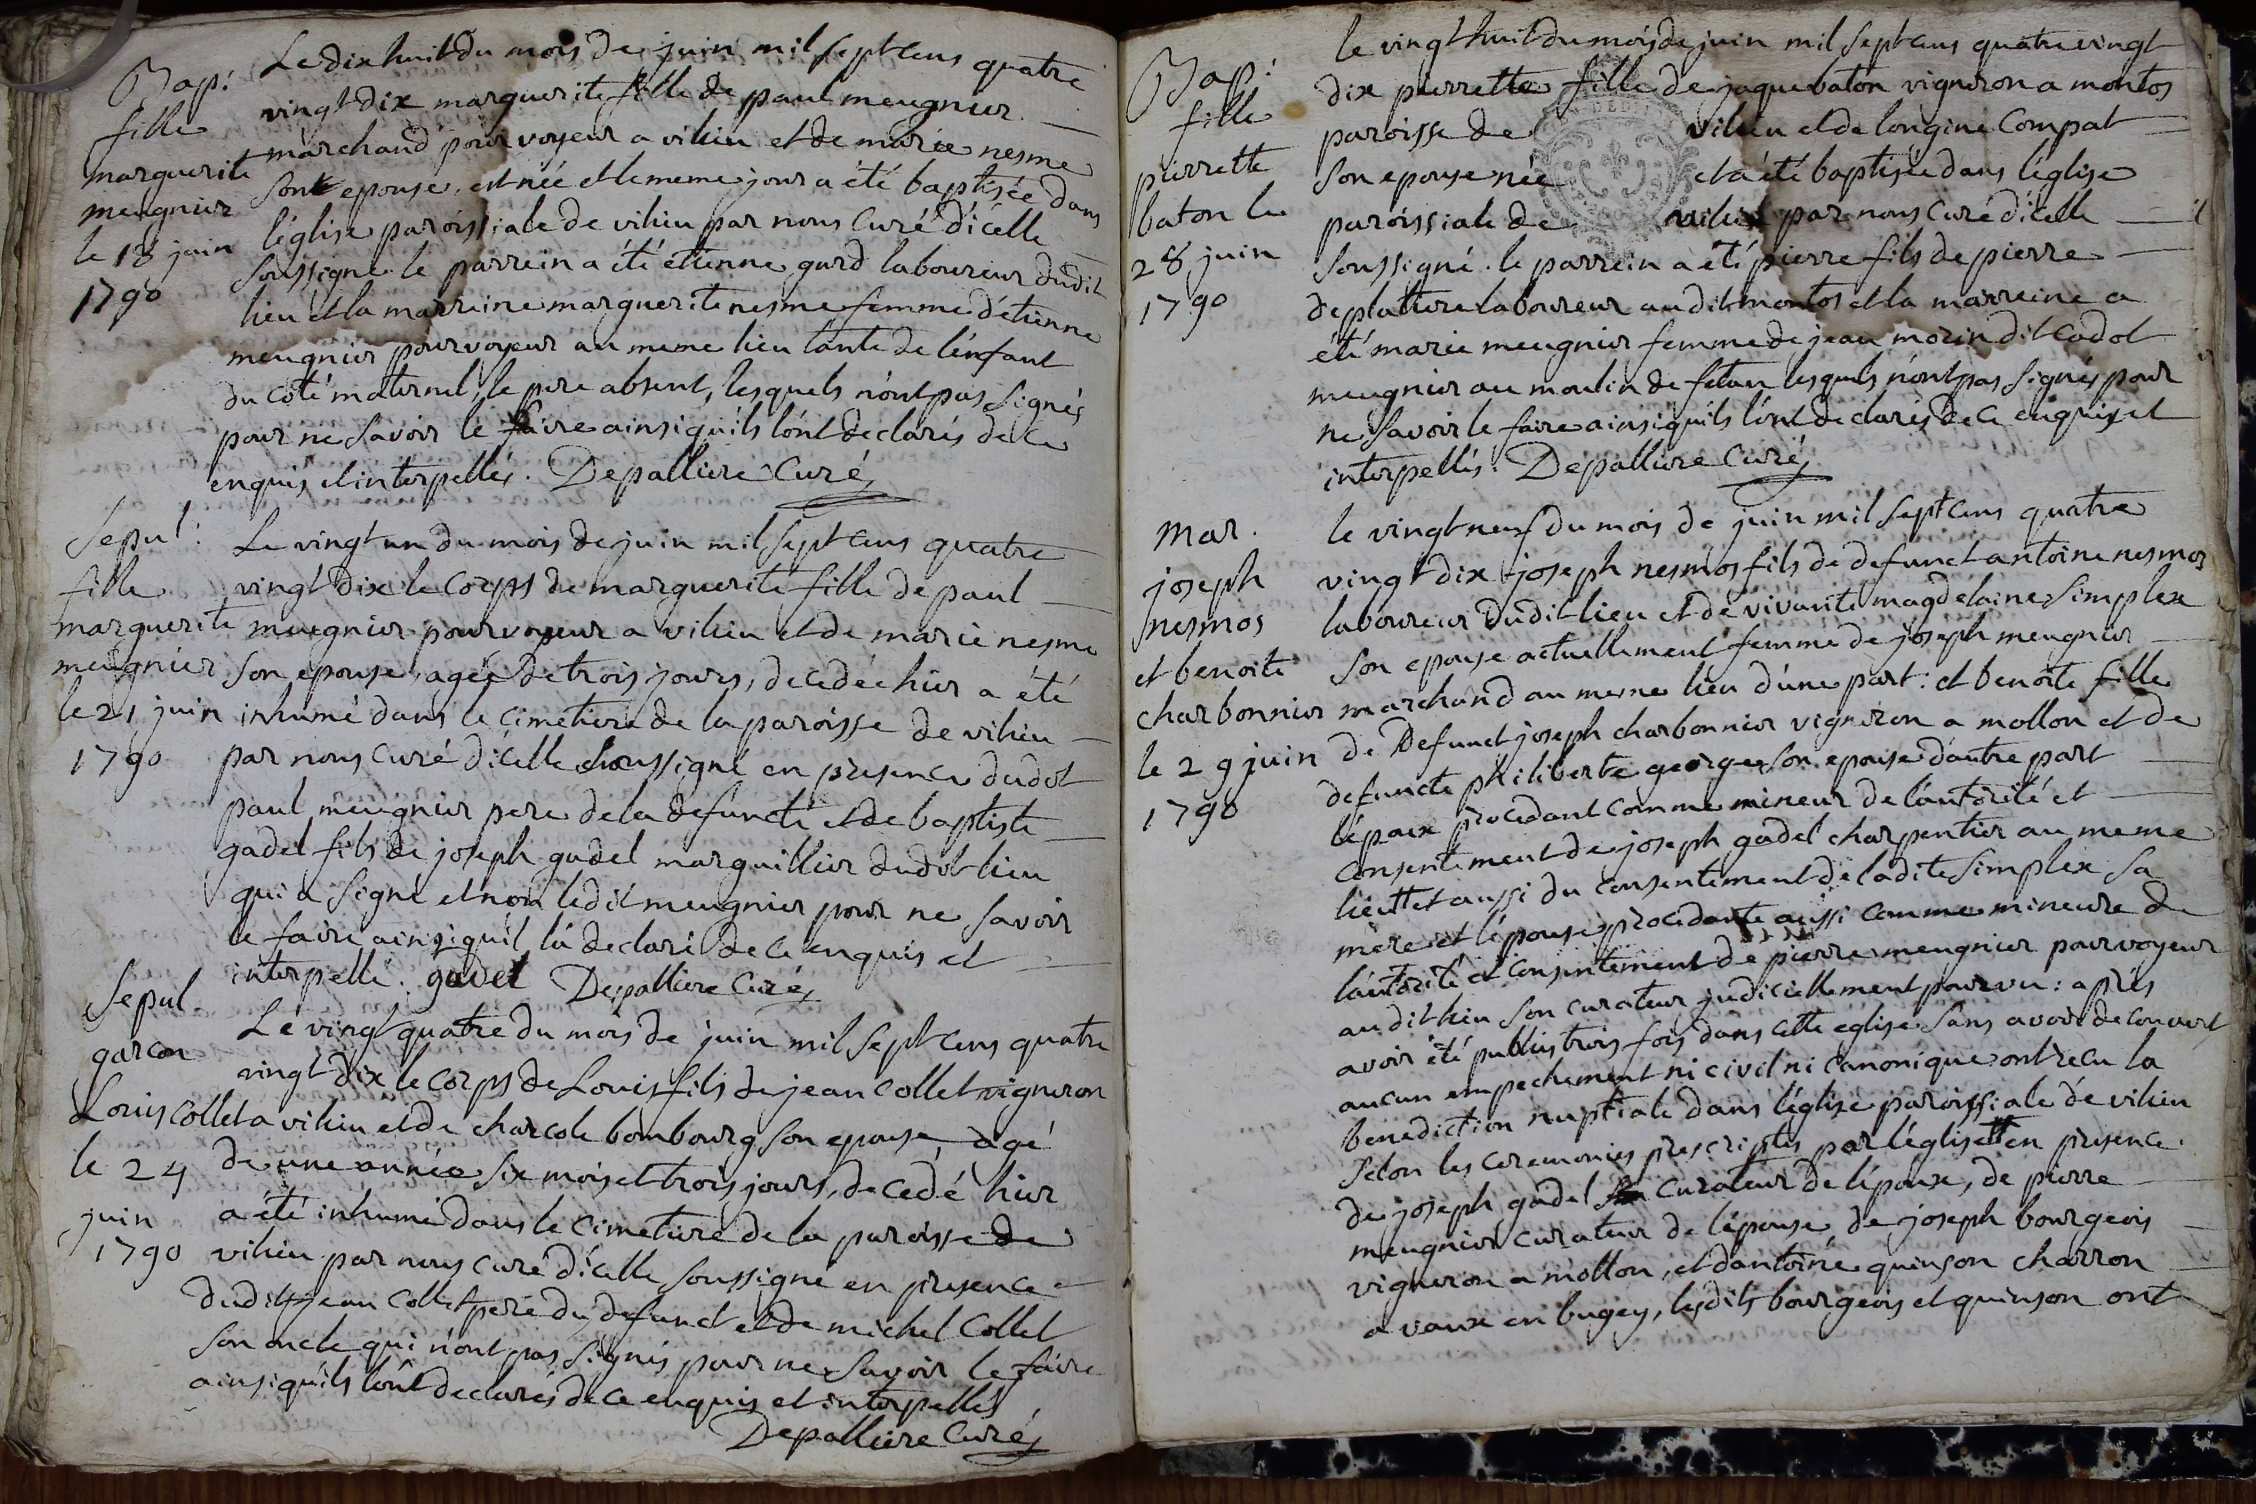 Bap:
fille
marguerite
meugnier
le 18 juin
1790
Le dix huit du mois de juin mil sept cens quatre
vingt dix marguerite fille de paul meugnier
marchand pourvoyeur a vilieu et de marie nesme
son epouse, est née et le meme jour a été baptisée dans
l'église paroissiale de vilieu par nous curé d'icelle
soussigné. le parrein a été etienne gurd laboureur dudit
lieu et la marreine marguerite nesme femme d'étienne
meugnier pourvoyeur au meme lieu tante de l'enfant
du coté maternel, le pere absent, lesquels n'ont pas signés
pour ne savoir le faire ainsi qu'ils l'ont declarés de ce
enquis et interpellés. Depalliere Curé
Sepul:
fille
marguerite
meugnier
le 21 juin
1790
Le vingt un du mois de juin mil sept cens quatre
vingt dix le corps de marguerite fille de paul
meugnier pourvoyeur a vilieu et de marie nesme
son epouse, agée de trois jours, decedée hier a été
inhumé dans le cimetiere de la paroisse de vilieu
par nous curé d'icelle soussigné en presence dudit
paul meugnier pere de la defuncte et de baptiste
gadel fils de joseph gadel marguillier dudit lieu
qui a signé et non ledit meugnier pour ne savoir
le faire ainsi qu'il l'a declaré de ce enquis et
interpellé. gadel Depalliere Curé
Sepul
garcon
Louis Collet
le 24
juin
1790
Le vingt quatre du mois de juin mil sept cens quatre
vingt dix le corps de Louis fils de jean Collet vigneron
a vilieu et de charcole bombourg son epouse, agé
de une année six mois et trois jours, decedé hier
a été inhumé dans le cimetiere de la paroisse de
vilieu par nous curé d'icelle soussigné en presence
dudit jean Collet pere du defunct et de michel Collet
son oncle qui n'ont pas signés pour ne savoir le faire
ainsi qu'ils l'ont declarés de ce enquis et interpellés
Depalliere Curé
Bap:
fille
pierrette
baton le
28 juin
1790
le vingt huit du mois de juin mil sept cens quatre vingt
dix pierrette fille de jaque baton vigneron a montos
paroisse de vilieu et de longine Compat
son epouse née et a été baptisée dans l'église
paroissiale de vilieu par nous curé d'icelle
soussigné. le parrein a été pierre fils de pierre
deplatiere laboureur audit montos et la marreine a
été marie meugnier femme de jean morin dit cadot
meugnier au moulin de fetan lesquels n'ont pas signés pour
ne savoir le faire ainsi qu'ils l'ont declarés de ce enquis et
interpellés. Depalliere Curé
Mar.
joseph
nesmos
et benoite
charbonnier
le 29 juin
1790
le vingt neuf du mois de juin mil sept cens quatre
vingt dix joseph nesmos fils de defunct antoine nesmos
laboureur dudit lieu et de vivante magdelaine Simplex
son epouse actuellement femme de joseph meugnier
marchand au meme lieu d'une part: et benoite fille
de defunct joseph charbonnier vigneron a mollon et de
defuncte philiberte george son epouse d'autre part
l'epoux procedant comme mineur de l'autorité et
consentement de joseph gadel charpentier au meme
lieu et aussi du consentement de ladite Simplex sa
mere et l'épouse procedante aussi comme mineure de
l'autorité et consentement de pierre meugnier pourvoyeur
audit lieu son curateur judiciellement pourvu: apres
avoir été publiés trois fois dans cette eglise sans avoir decouvert
aucun empechement ni civil ni canonique ont recu la
benediction nuptiale dans l'église paroissiale de vilieu
selon les ceremonies prescriptes par l'église et en presence
de joseph gadel curateur de l'époux, de pierre
meugnier curateur de l'épouse, de joseph bourgeois
vigneron a mollon, et d'antoine quinson charron
a vaux en bugey, lesdits bourgeois et quinson ont